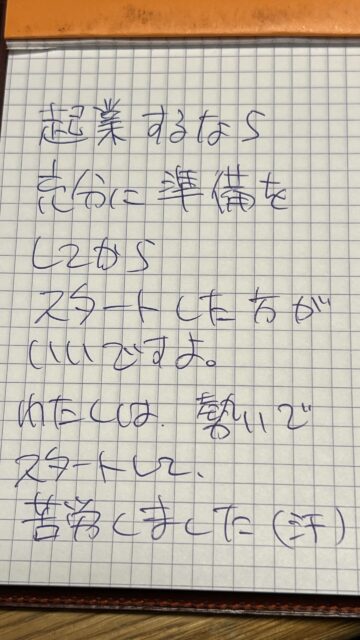 起業するなら
充分に準備を
してから
スタートした方が
いいですよ。
わたしは、勢いで
スタートして、
苦労しました(汗)